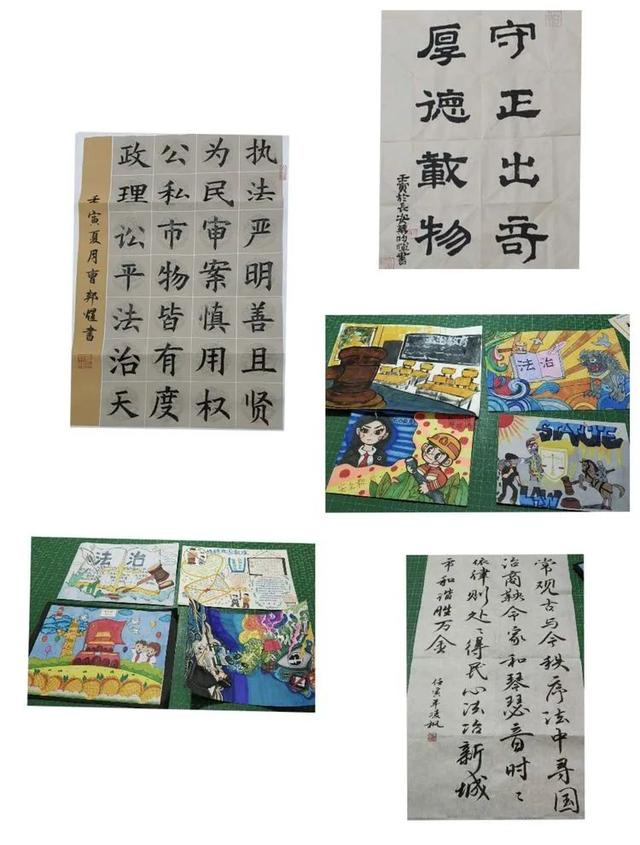 守正出奇
厚德載物
执法严明善且贤
为民审案慎用权
公私市物皆有度
政理讼平法治天
壬寅夏月曹邦煜书
法治
STATUTE
LAW
法治
常观古与今秩序法中寻国
治商鞅令家和琴瑟音时々
依律则处々得民心法治新城
市和谐胜万金